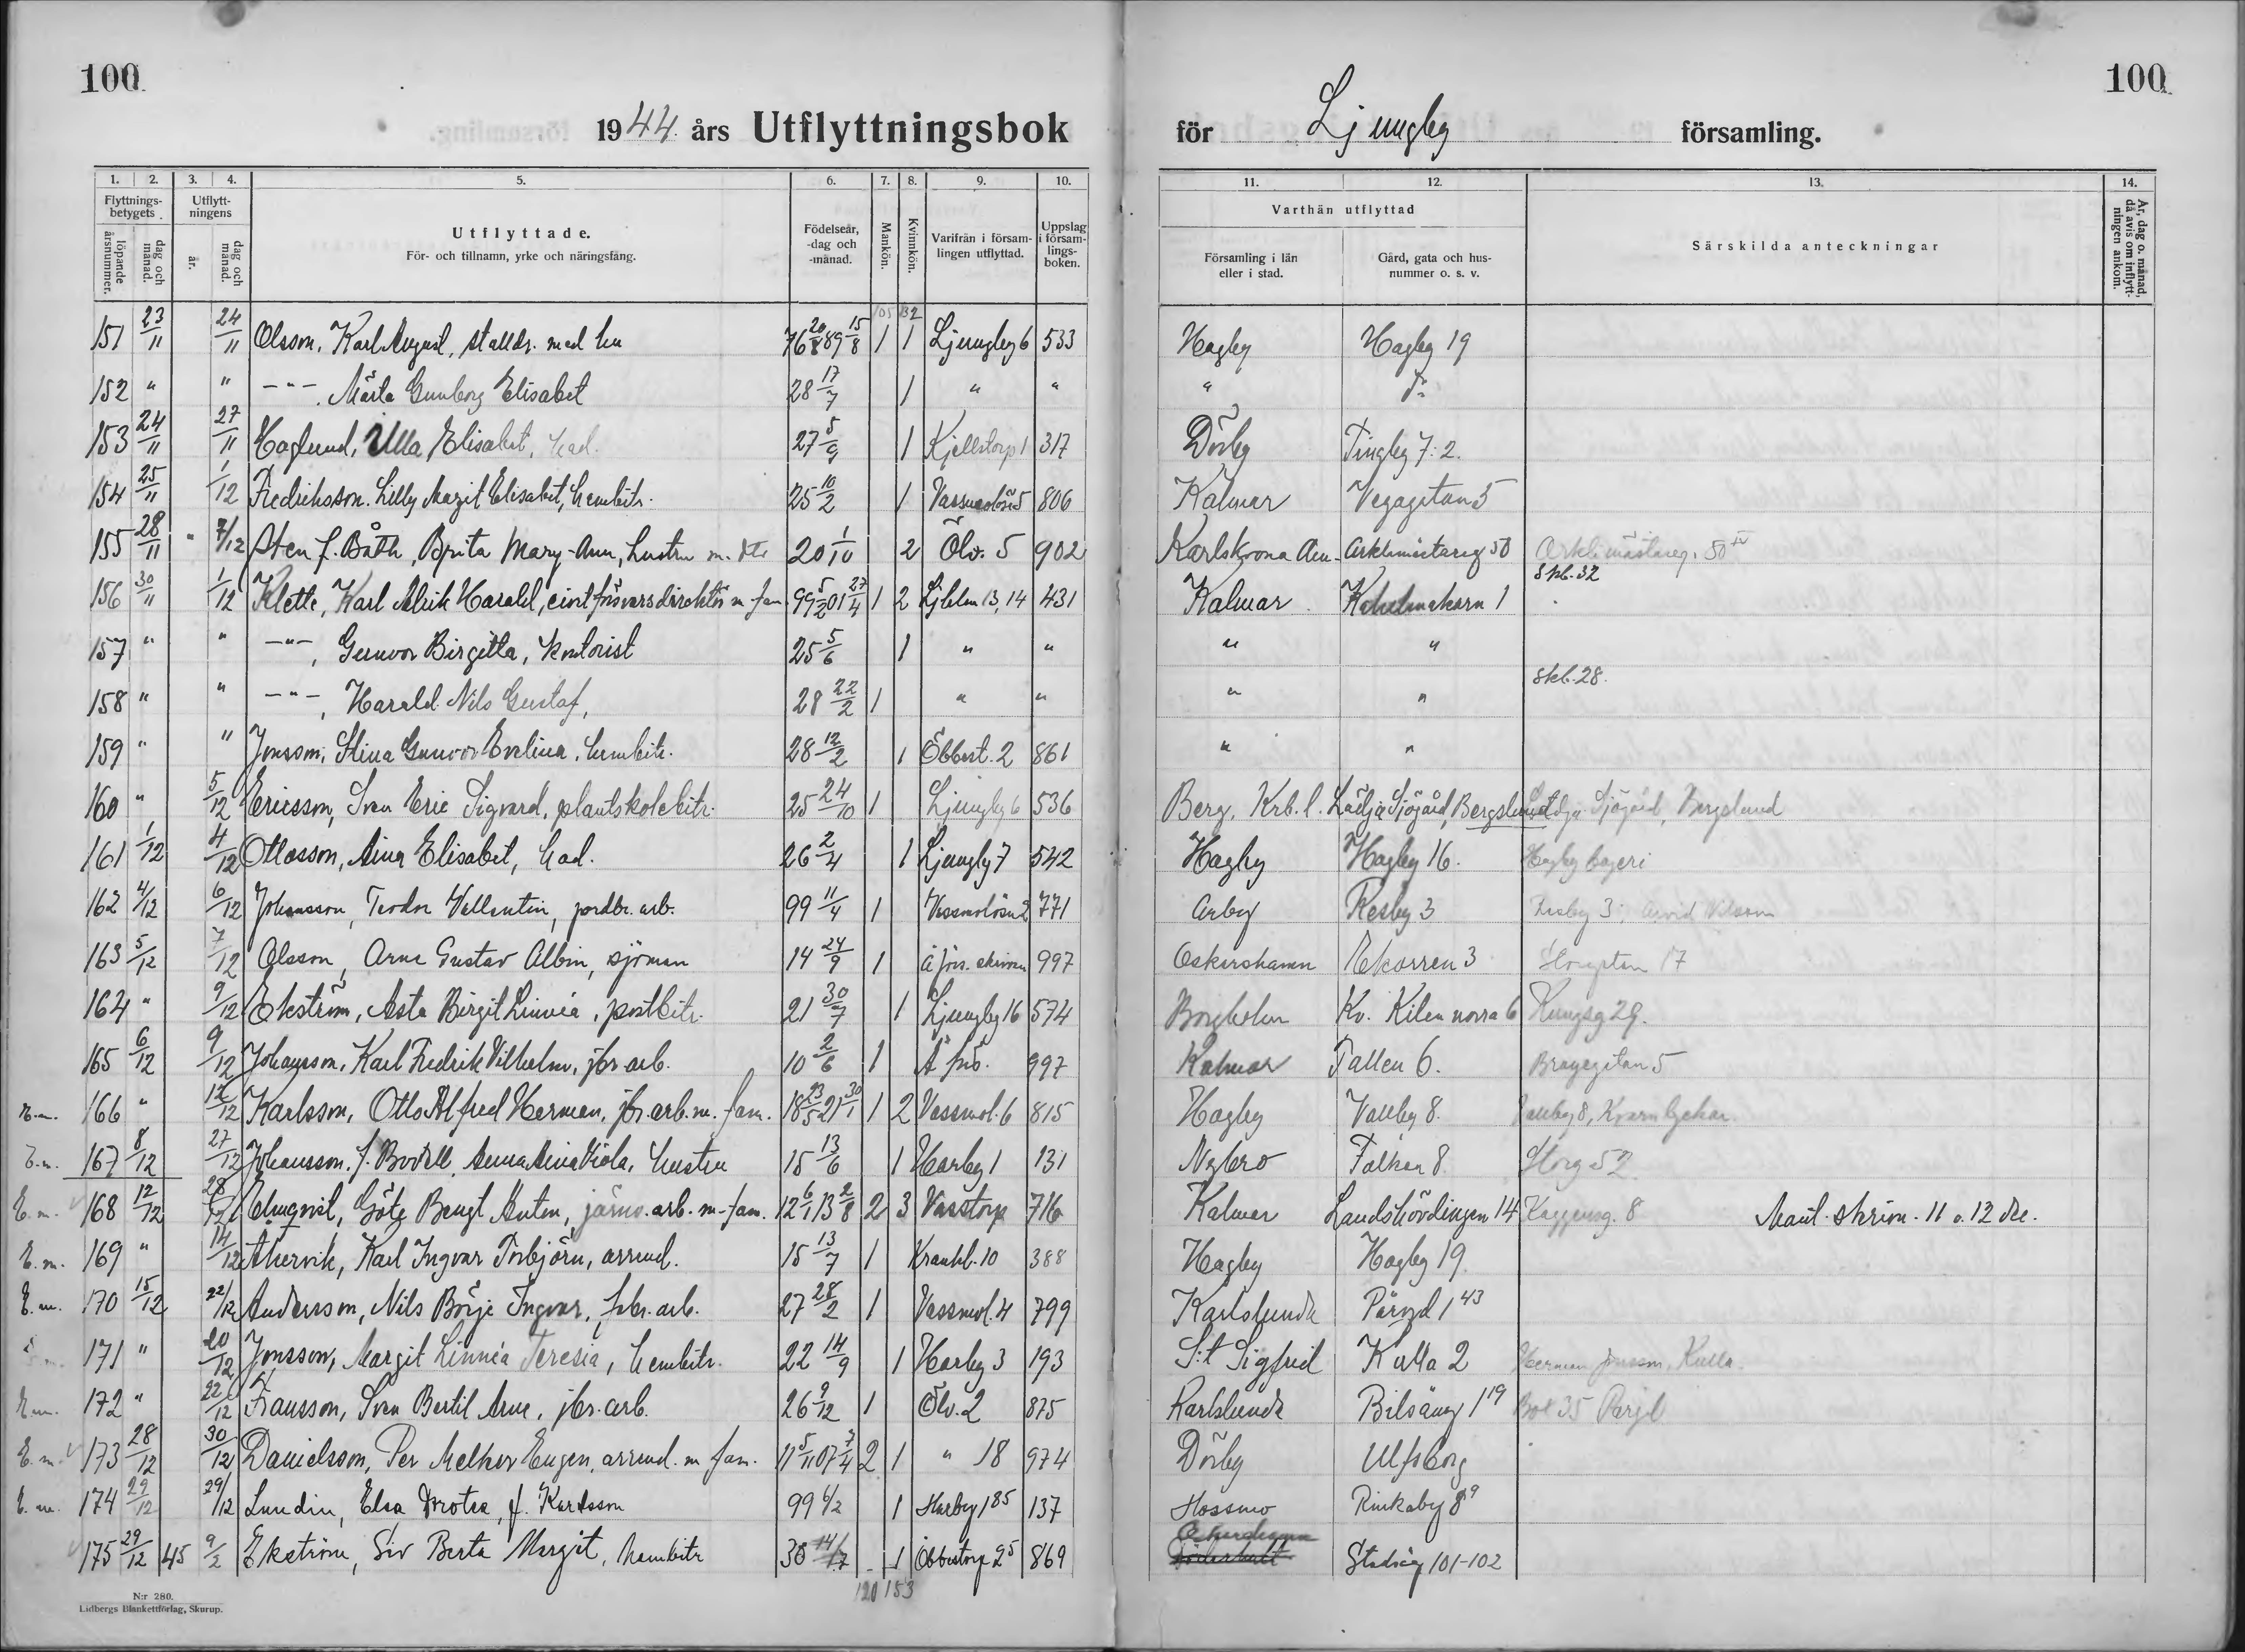 100
100
1944 års Utflyttningsbok
för Ljungby församling.
1. 2. 3. 4. 5. 6. 7. 8. 9. 10. 11. 12. 13. 14.
Flyttnings-betygets
löpande årsnummer.
dag och månad.
Utflytt-ningens
år.
dag och månad.
Utflyttade.
För- och tillnamn, yrke och näringsfång.
Födelseår, -dag och -månad.
Mankön.
Kvinnkön.
Varifrån i församlingen utflyttad.
Uppslag i församlingsboken.
Varthän utflyttad
Församling i län eller i stad.
Gård, gata och husnummer o. s. v.
Särskilda anteckningar
År, dag o. månad, då avis om inflyttningen ankom.
105 132
151 23/11 24/11 Olsson, Karl August, stalldr. med hu 76 20/8 89 15/8 1 1 Ljungby 6 533 Hagby Hagby 19
152 " " -"-, Märta Gunborg Elisabet 28 17/7 1 " " " d:o
153 24/11 27/11 Haglund, Ulla Elisabet, had. 27 5/9 1 Kjellstorp 1 317 Dörby Tingby 7:2.
154 25/11 1/12 Fredriksson, Lilly Margit Elisabet, hembitr. 25 10/2 1 Vassmolösa 5 806 Kalmar Vegagatan 5
155 28/11 " 7/12 Sten f. Bååth, Brita Mary-Ann, hustru m. dtr 20 1/10 2 Ölv. 5 902 Karlskrona Am. Arklimästareg 50 Arklimästareg. 50 IV
Skb. 32
156 30/11 1/12 Klette, Karl Alrik Harald, civilförsvarsdirektör m fam 99 5/2 01 27/4 1 2 Ljbholm 13, 14 431 Kalmar 1
157 " " -"-, Gunvor Birgitta, kontorist 25 5/6 1 " " " "
Skb. 28.
158 " " -"-, Harald Nils Gustaf, 28 22/2 1 " " " "
159 " " Jonsson, Stina Gunvor Evelina, hembitr. 28 12/2 1 Ebbest. 2 861 " "
160 " 5/12 Ericsson, Sven Eric Sigvard, plantskolebitr. 25 24/10 1 Ljungby 6 536 Berg, Krb. l. Lädja Sjögård, Bergslund Lädja Sjögård, Bergslund
161 1/12 4/12 Ottosson, Aina Elisabet, had. 26 2/4 1 Ljungby 7 542 Hagby Hagby 16. Hagby bageri
162 4/12 6/12 Johansson, Teodor Vallentin, jordbr. arb. 99 11/4 1 Vassmolösa 2 771 Arby Resby 3 Resby 3, Arvid Nilsson
163 5/12 7/12 Olsson, Arne Gustav Albin, sjöman 14 24/9 1 å förs. skriven 997 Oskarshamn Ekorren 3 17
164 " 9/12 Ekström, Asta Birgit Linnéa, postbitr. 21 30/7 1 Ljungby 16 574 Borgholm Kv. Kilen norra 6 Kungsg 29.
165 6/12 9/12 Johansson, Karl Fredrik Vilhelm, jbr arb. 10 2/6 1 Å förs. 997 Kalmar Tallen 6. Bragegatan 5
E.m. 166 " 12/12 Karlsson, Otto Alfred Herman, jbr. arb. m. fam. 18 23/5 21 30/1 1 2 Vassmol. 6 815 Hagby Vallby 8. Vallby 8, Kvarnbackar
E.m. 167 8/12 27/12 Johansson, f. Bodell, Anna Aina Viola, hustru 15 13/6 1 Harby 1 131 Nybro Falken 8. Storg 52
E.m. 168 12/12 28/12 Elmqvist, Göte Bengt Anton, järnv. arb. m. fam. 12 6/1 13 2/8 2 3 Vasstorp 716 Kalmar Landshövdingen 14 Kaggensg. 8 Mant. skrivn. 11 o. 12 dec.
E.m. 169 " 14/12 Åkervik, Karl Ingvar Torbjörn, arrend. 15 13/7 1 Krankl. 10 388 Hagby Hagby 19.
E.m. 170 15/12 22/12 Andersson, Nils Börje Ingvar, fabr. arb. 27 28/2 1 Vassmol. 4 799 Karlslunda Påryd 1 43
171 " 20/12 Jonsson, Margit Linnéa Teresia, hembitr. 22 14/9 1 Harby 3 193 S:t Sigfrid Kulla 2 Herman Jonsson, Kulla
E.m. 172 " 22/12 Fransson, Sven Bertil Arne, jbr. arb. 26 9/12 1 Ölv. 2 875 Karlslunda Bilsäng 1 19 Box 35 Påryd
E.m. 173 28/12 30/12 Danielsson, Per Melker Eugen, arrend. m fam. 11 5/11 07 7/4 2 1 " 18 974 Dörby Ulfsborg
E.m. 174 29/12 29/12 Lundin, Elsa Dorotea, f. Karlsson 99 6/2 1 Harby 1 85 137 Hossmo Rinkaby 8 19
175 29/12 45 9/2 Ekström, Siv Berta Margit, hembitr 30 14/17 1 Ebbetorp 2 5 869 Döderhult Stadsäg 101-102
120 153
N:r 280.
Lidbergs Blankettförlag, Skurup.